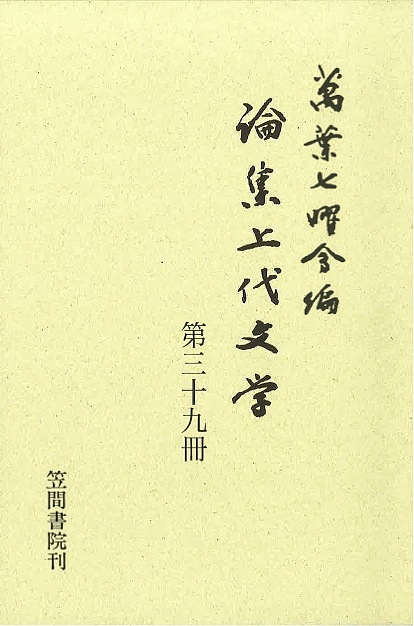 萬葉七曜会編
論集上代文学
第三十九冊
笠間書院刊